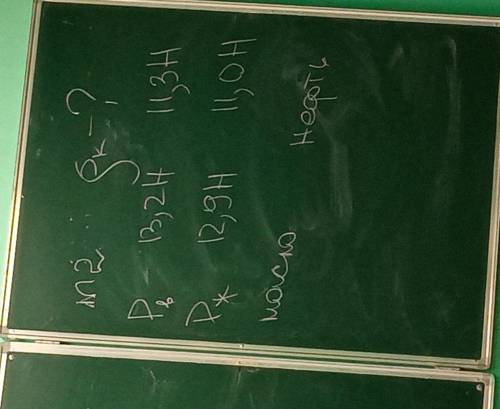 m2. ρк - ?
Рв 13,2Н 11,3Н
Р* 12,9Н 11,0Н
масло нефть